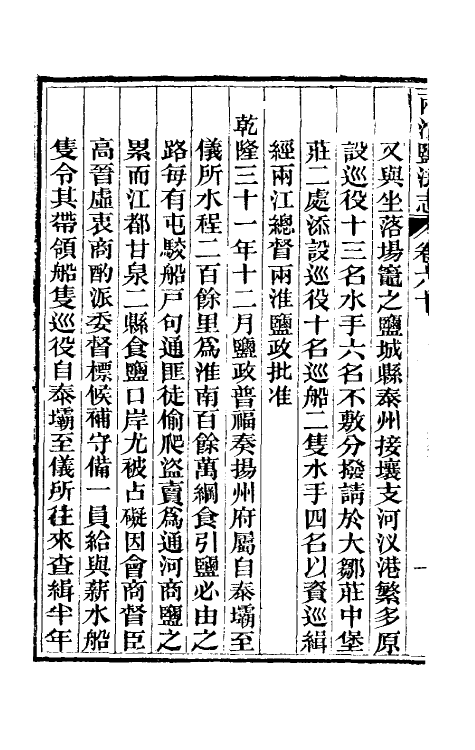 兩淮鹽法志 卷六十 一
又與坐落場竈之鹽城縣泰州接壤支河汊港繁多原
設巡役十三名水手六名不敷分撥請於大鄒莊中堡
莊二處添設巡役十名巡船二隻水手四名以資巡緝
經兩江總督兩淮鹽政批准
乾隆三十一年十二月鹽政普福奏揚州府屬自泰壩至
儀所水程二百餘里爲淮南百餘萬綱食引鹽必由之
路每有屯駁船戶句通匪徒偷爬盜賣爲通河商鹽之
累而江都甘泉二縣食鹽口岸尤被占礙因會商督臣
高晉虛衷商酌派委督標候補守備一員給與薪水船
隻令其帶領船隻巡役自泰壩至儀所往來查緝半年